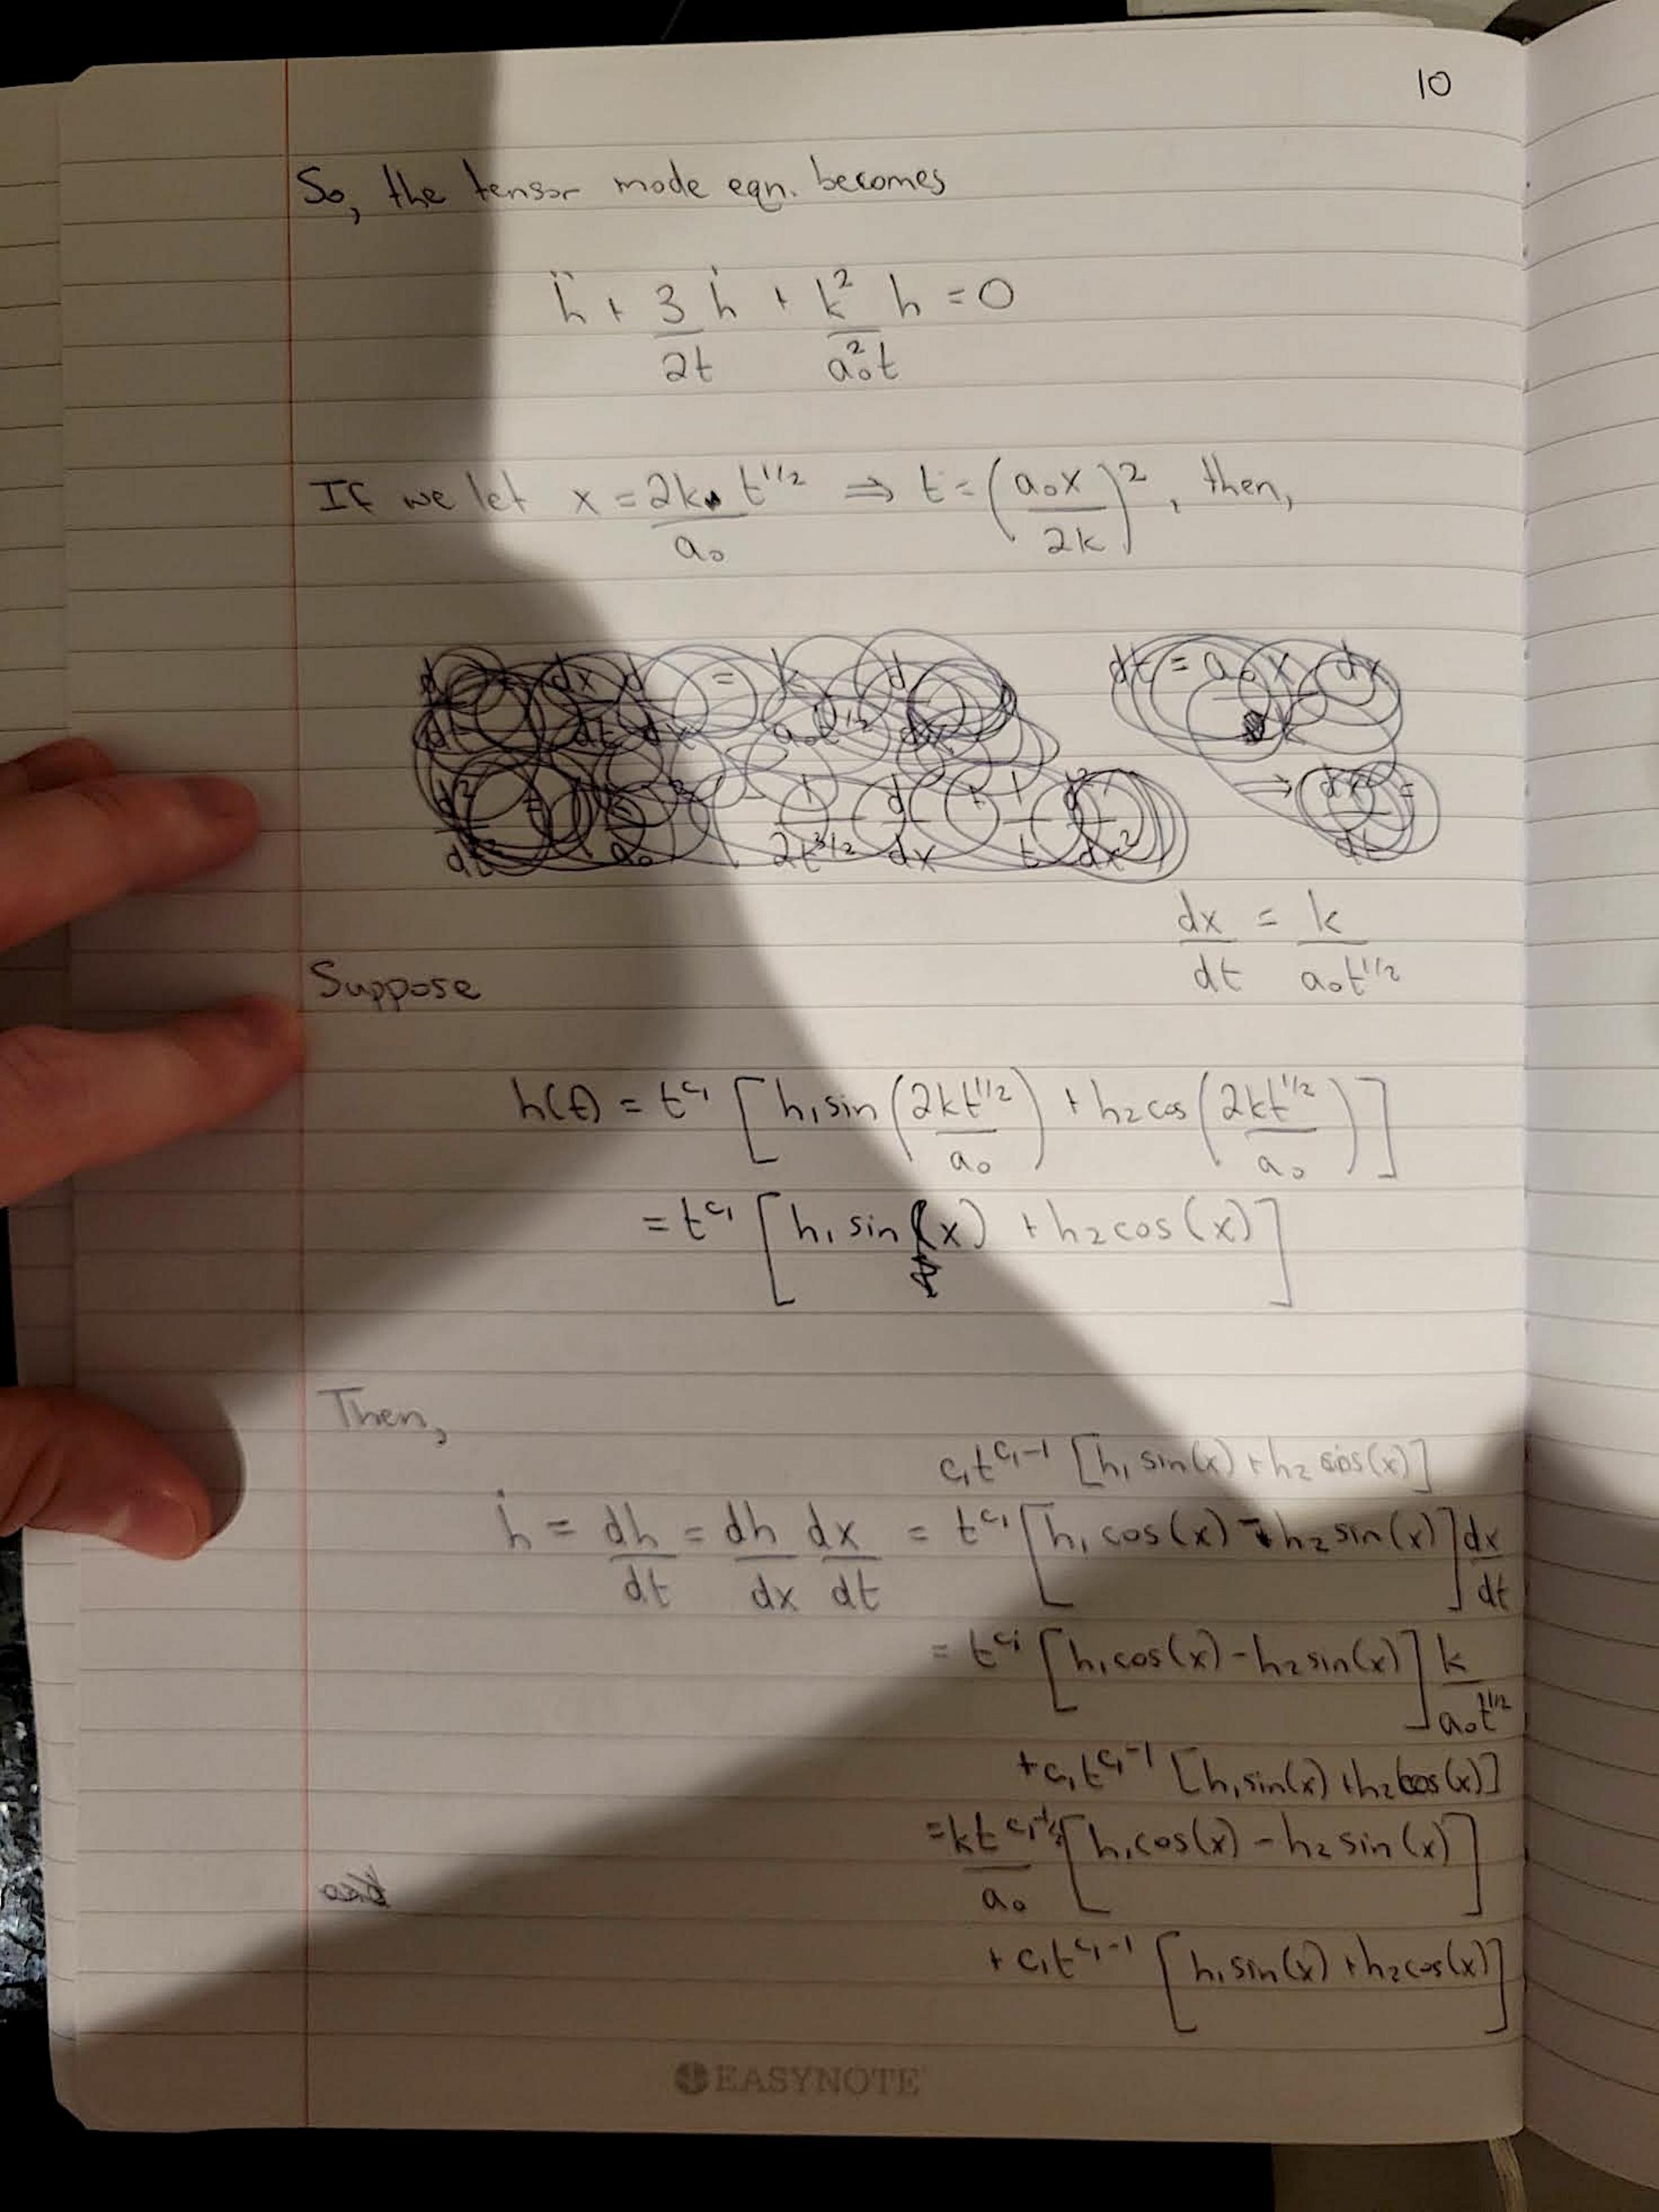 10
So, the tensor mode eqn. becomes
ḧ + 3/2t ḣ + k²/a₀²t h = 0
If we let x = 2k/a₀ t^1/2 ⇒ t = (a₀x/2k)², then,
dx/dt = k/a₀t^1/2
Suppose
h(t) = t^c₁ [h₁ sin(2kt^1/2/a₀) + h₂ cos(2kt^1/2/a₀)]
= t^c₁ [h₁ sin(x) + h₂ cos(x)]
Then,
c₁t^c₁-1 [h₁ sin(x) + h₂ cos(x)]
ḣ = dh/dt = dh/dx dx/dt = t^c₁ [h₁ cos(x) - h₂ sin(x)] dx/dt
= t^c₁ [h₁ cos(x) - h₂ sin(x)] k/a₀t^1/2
+ c₁t^c₁-1 [h₁ sin(x) + h₂ cos(x)]
= kt^c₁-1/2/a₀ [h₁ cos(x) - h₂ sin(x)]
+ c₁t^c₁-1 [h₁ sin(x) + h₂ cos(x)]
EASYNOTE